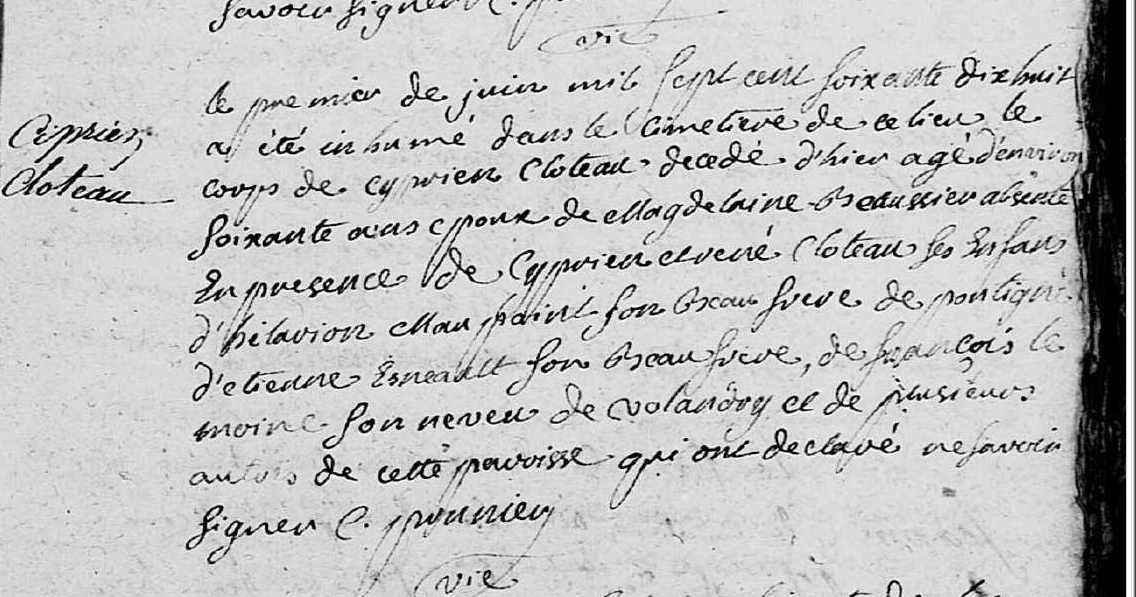 savoir signer C.
vic
le premier de juin mil sept cent soixante dixhuit
Ciprien
a été inhumé dans le cimetiere de ce lieu le
Cloteau
corps de cyprien Cloteau decedé d'hier agé d'environ
soixante ans epoux de Magdelaine Beaussier absente
En presence de Cyprien et rené Cloteau ses Enfans
d'hilarion Maupoint son Beau frere de pontigné
d'etienne Esneault son Beau frere, de françois le
moine son neveu de volandry et de plusieurs
autres de cette paroisse qui ont declaré ne savoir
signer C.
vic